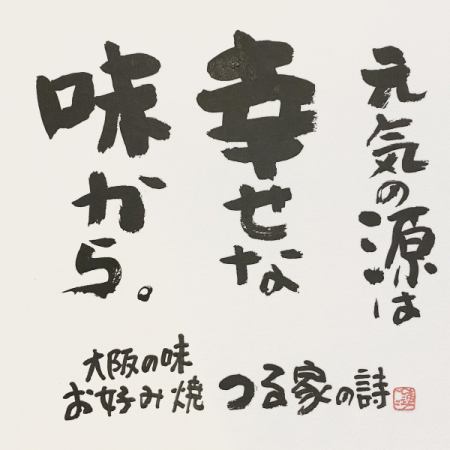 元気の源は
幸せな
味から。
大阪の味
お好み焼
つる家の詩